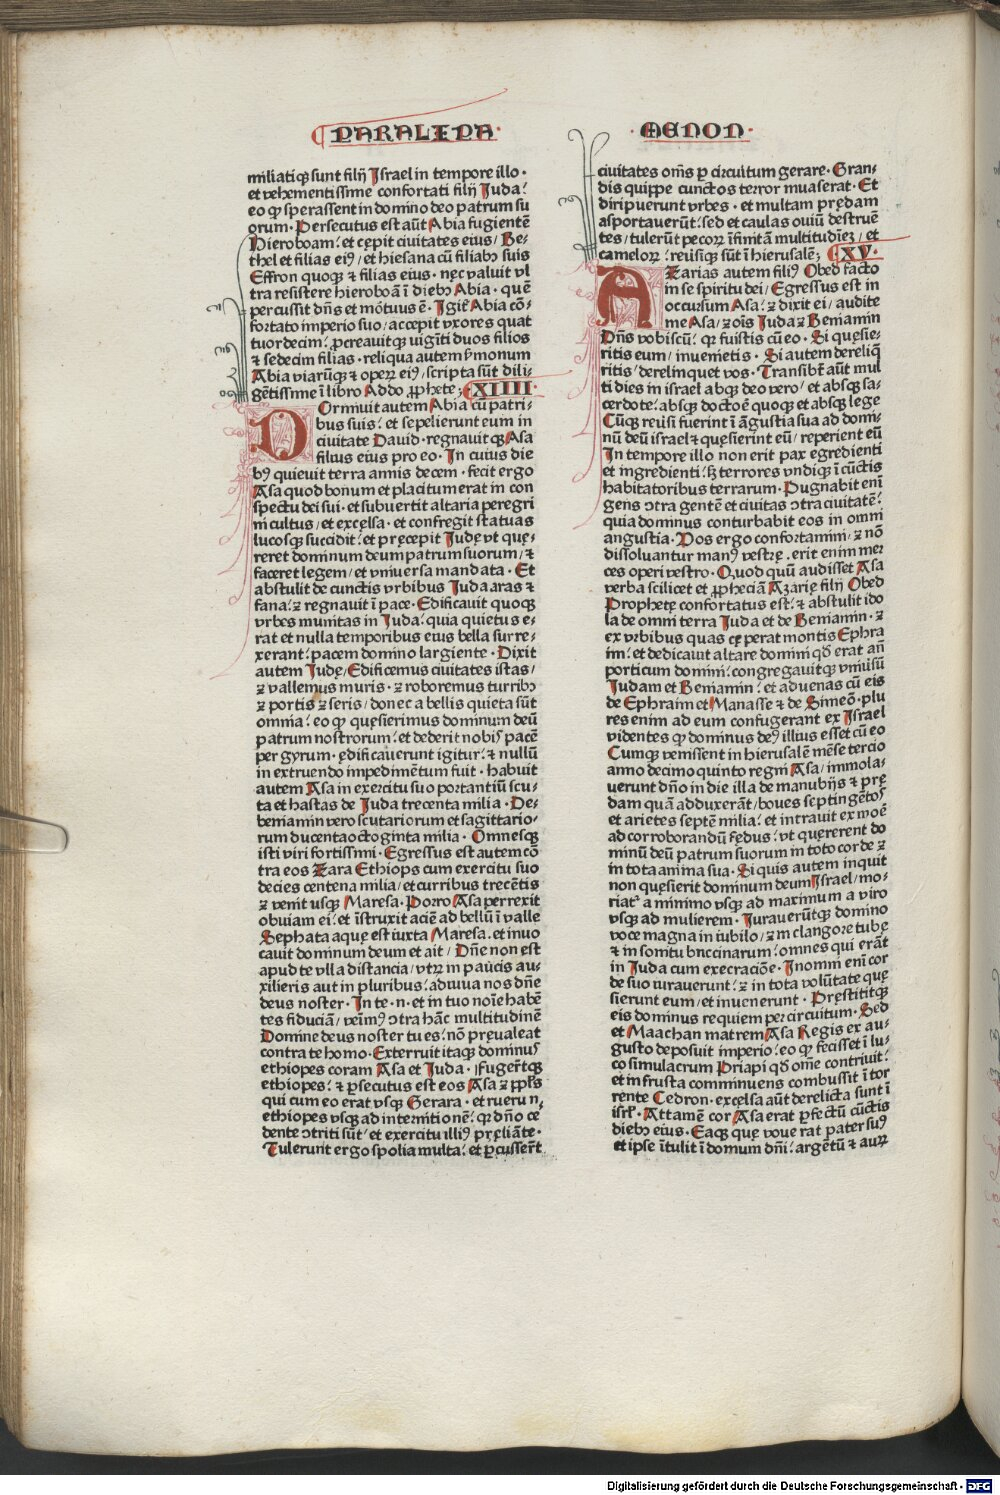 PARALIPA
MENON
miliatiqꝫ sunt filij Israel in tempore illo ·
et vehementissime confortati filij Iuda:
eo ꝙ sperassent in domino deo patrum su
orum · Persecutus est aūt Abia fugientē
Hieroboam: et cępit ciuitates eius / Be⸗
thel et filias eiꝰ / et hiesana cū filiabꝫ suis
Effron quoqꝫ ⁊ filias eius · nęc valuit vl
tra resistere hieroboā ī diebꝫ Abia · quē
percussit dn̄s et mōtuus ē · Igit᷑ Abia cō⸗
fortato imperio suo / accepit vxores quat
tuordecim: ꝓcreauitqꝫ viginti duos filios
⁊ sedecim filias · reliqua autem v̓monum
Abia viarūqꝫ ⁊ operꝝ eiꝰ / scripta sūt dili⸗
gētissime ī libro Addo ꝓphete; XIIII ·
DOrmiuit autem Abia cū patri⸗
bus suis: et sepelierunt eum in
ciuitate Dauid · regnauit qꝫ Asa
filius eius pro eo · In cuius die
bꝰ quieuit terra annis decem · fecit ergo
Asa quod bonum et placitum erat in con
spectu dei sui · et subuertit altaria peregri
ni cultus / et excęlsa · et confregit statuas
lucosqꝫ succidit: et pręcepit Iudę vt quę⸗
reret dominum deum patrum suorum / ⁊
faceret legem / et vniuersa mandata · Et
abstulit de cunctis vrbibus Iuda aras ⁊
fana: ⁊ regnauit ī pace · Edificauit quoqꝫ
vrbes munitas in Iuda: quia quietus e⸗
rat et nulla temporibus eius bella surre⸗
xerant: pacem domino largiente · Dixit
autem Iudę / Edificemus ciuitates istas /
⁊ vallemus muris · ⁊ roboremus turribꝫ
⁊ portis ⁊ seris / donec a bellis quieta sūt
omnia: eo ꝙ quęsierimus dominum deū
patrum nostrorum: et dederit nobiꝭ pacē
per gyrum · ędificauerunt igitur: ⁊ nullū
in extruendo impedimētum fuit · habuit
autem Asa in exercitu suo portantiū scu⸗
ta et hastas de Iuda trecenta milia · De⸗
beniamin vero scutariorum et sagittario⸗
rum ducenta octoginta milia · Omnesqꝫ
isti viri fortissimi · Egressus est autem cō
tra eos Zara Ethiops cum exercitu suo
decies centena milia / et curribus trecētis
⁊ venit usqꝫ Maresa · Porro Asa perrexit
obuiam ei: et īstruxit aciē ad bellū ī valle
Sephata aquę est iuxta Maresa · et inuo
cauit dominum deum et ait / Dn̄e non est
apud te vlla distancia / vtꝝ in paucis au⸗
xilieris aut in pluribus: adiuua nos dn̄e
deus noster · In te · n · et in tuo noīe habē
tes fiduciā / veīmꝰ ↄtra hāc multitudinē
Domine deus noster tu es: nō pręualeat
contra te homo · Exterruit itaqꝫ dominuꝭ
ethiopes coram Asa et Iuda · Fuger̄tqꝫ
ethiopes: ⁊ ꝑsecutus est eos Asa ⁊ ppl̄s
qui cum eo erat vsqꝫ Gerara · et ruerun
ethiopes vsqꝫ ad internitionē: qꝫ dn̄o cę
dente ↄtriti sūt / et exercitu illiꝰ pręliāte ·
Tulerunt ergo spolia multa: et ꝑcusser̄t
ciuitates om̄s ꝑ circuitum gerare · Gran⸗
dis quippe cunctos terror inuaserat · Et
diripuerunt vrbes · et multam prędam
asportauerūt: sed et caulas ouiū destruē
tes / tulerūt pecorꝝ īfinitā multitudīeꝫ / et
camelorꝝ: reūsiqꝫ sūt ī hierusalē; XV ·
AZarias autem filiꝰ Obed facto
in se spiritu dei / Egressus est in
occursum Asa: ⁊ dixit ei / audite
me Asa / ⁊ oīs Iuda ⁊ Beniamin
Dn̄s vobiscū: qꝫ fuistis cū eo · Si quęsie⸗
ritis eum / inuenietis · Si autem dereliq̄
ritis / derelinquet vos · Transibt̄ aūt mul
ti dies in israel absqꝫ deo vero / et absqꝫ sa⸗
cerdote: absqꝫ doctoē quoqꝫ et absqꝫ lege
Cūqꝫ reuisi fuerint ī āgustia sua ad domi⸗
nū deū israel ⁊ quęsierint eū / reperient eū
In tempore illo non erit pax egredienti
et ingredienti: sꝫ terrores vndiqꝫ ī cūctis
habitatoribus terrarum · Pugnabit enī
gens ↄtra gentē et ciuitas ↄtra ciuitatē:
quia dominus conturbabit eos in omni
angustia · Vos ergo confortamini / ⁊ nō
dissoluantur manꝰ vestrę · erit enim mer
ces operi vestro · Quod quū audisset Asa
verba scilicet et ꝓpheciā Azarię filij Obed
Prophetę confortatus est: ⁊ abstulit ido
la de omni terra Iuda et de Beniamin · ⁊
ex vrbibus quas cęperat montis Ephra
im: et dedicauit altare domini qd̄ erat an̄
porticum domini: congregauitqꝫ vniūsū
Iudam et Beniamin: et aduenas cū eis
de Ephraim et Manasse ⁊ de Simeō · plu
res enim ad eum confugerant ex Israel
videntes ꝙ dominus deꝰ illius esset cū eo
Cumqꝫ venissent in hierusalē mēse tercio
anno decimoquinto regni Asa / immola⸗
uerunt dn̄o in die illa de manubijs ⁊ prę
dam quā adduxerāt / boues septingētoꝭ
et arietes septē milia: et intrauit ex moē
ad corroborandū fędus: vt quęrerent do
minū deū patrum suorum in toto corde ⁊
in tota anima sua · Si quis autem inquit
non quęsierit dominum deum Israel / mo⸗
riat᷑ a minimo vsqꝫ ad maximum a viro
vsqꝫ ad mulierem · Iurauerūtqꝫ domino
voce magna in iubilo / ⁊ in clangore tubę
⁊ in sonitu buccinarum: omnes qui erāt
in Iuda cum execraciōe · In omni enī cor
de suo iurauerunt: ⁊ in tota volūtate quę
sierunt eum / et inuenerunt · Pręstititqꝫ
eis dominus requiem per circuitum · Sed
et Maachan matrem Asa Regis ex au⸗
gusto deposuit imperio: eo ꝙ fecisset ī lu⸗
co simulacrum Priapi qd̄ om̄e contriuit:
et in frusta comminuens combussit ī tor
rente Cedron · excęlsa aūt derelicta sunt ī
isrl̄ · Attamē cor Asa erat ꝑfectū cūctis
diebꝫ eius · Eaqꝫ quę vouerat pater suꝰ
et ipse ītulit ī domum dn̄i: argētū ⁊ aurꝝ
Digitalisierung gefördert durch die Deutsche Forschungsgemeinschaft - DFG